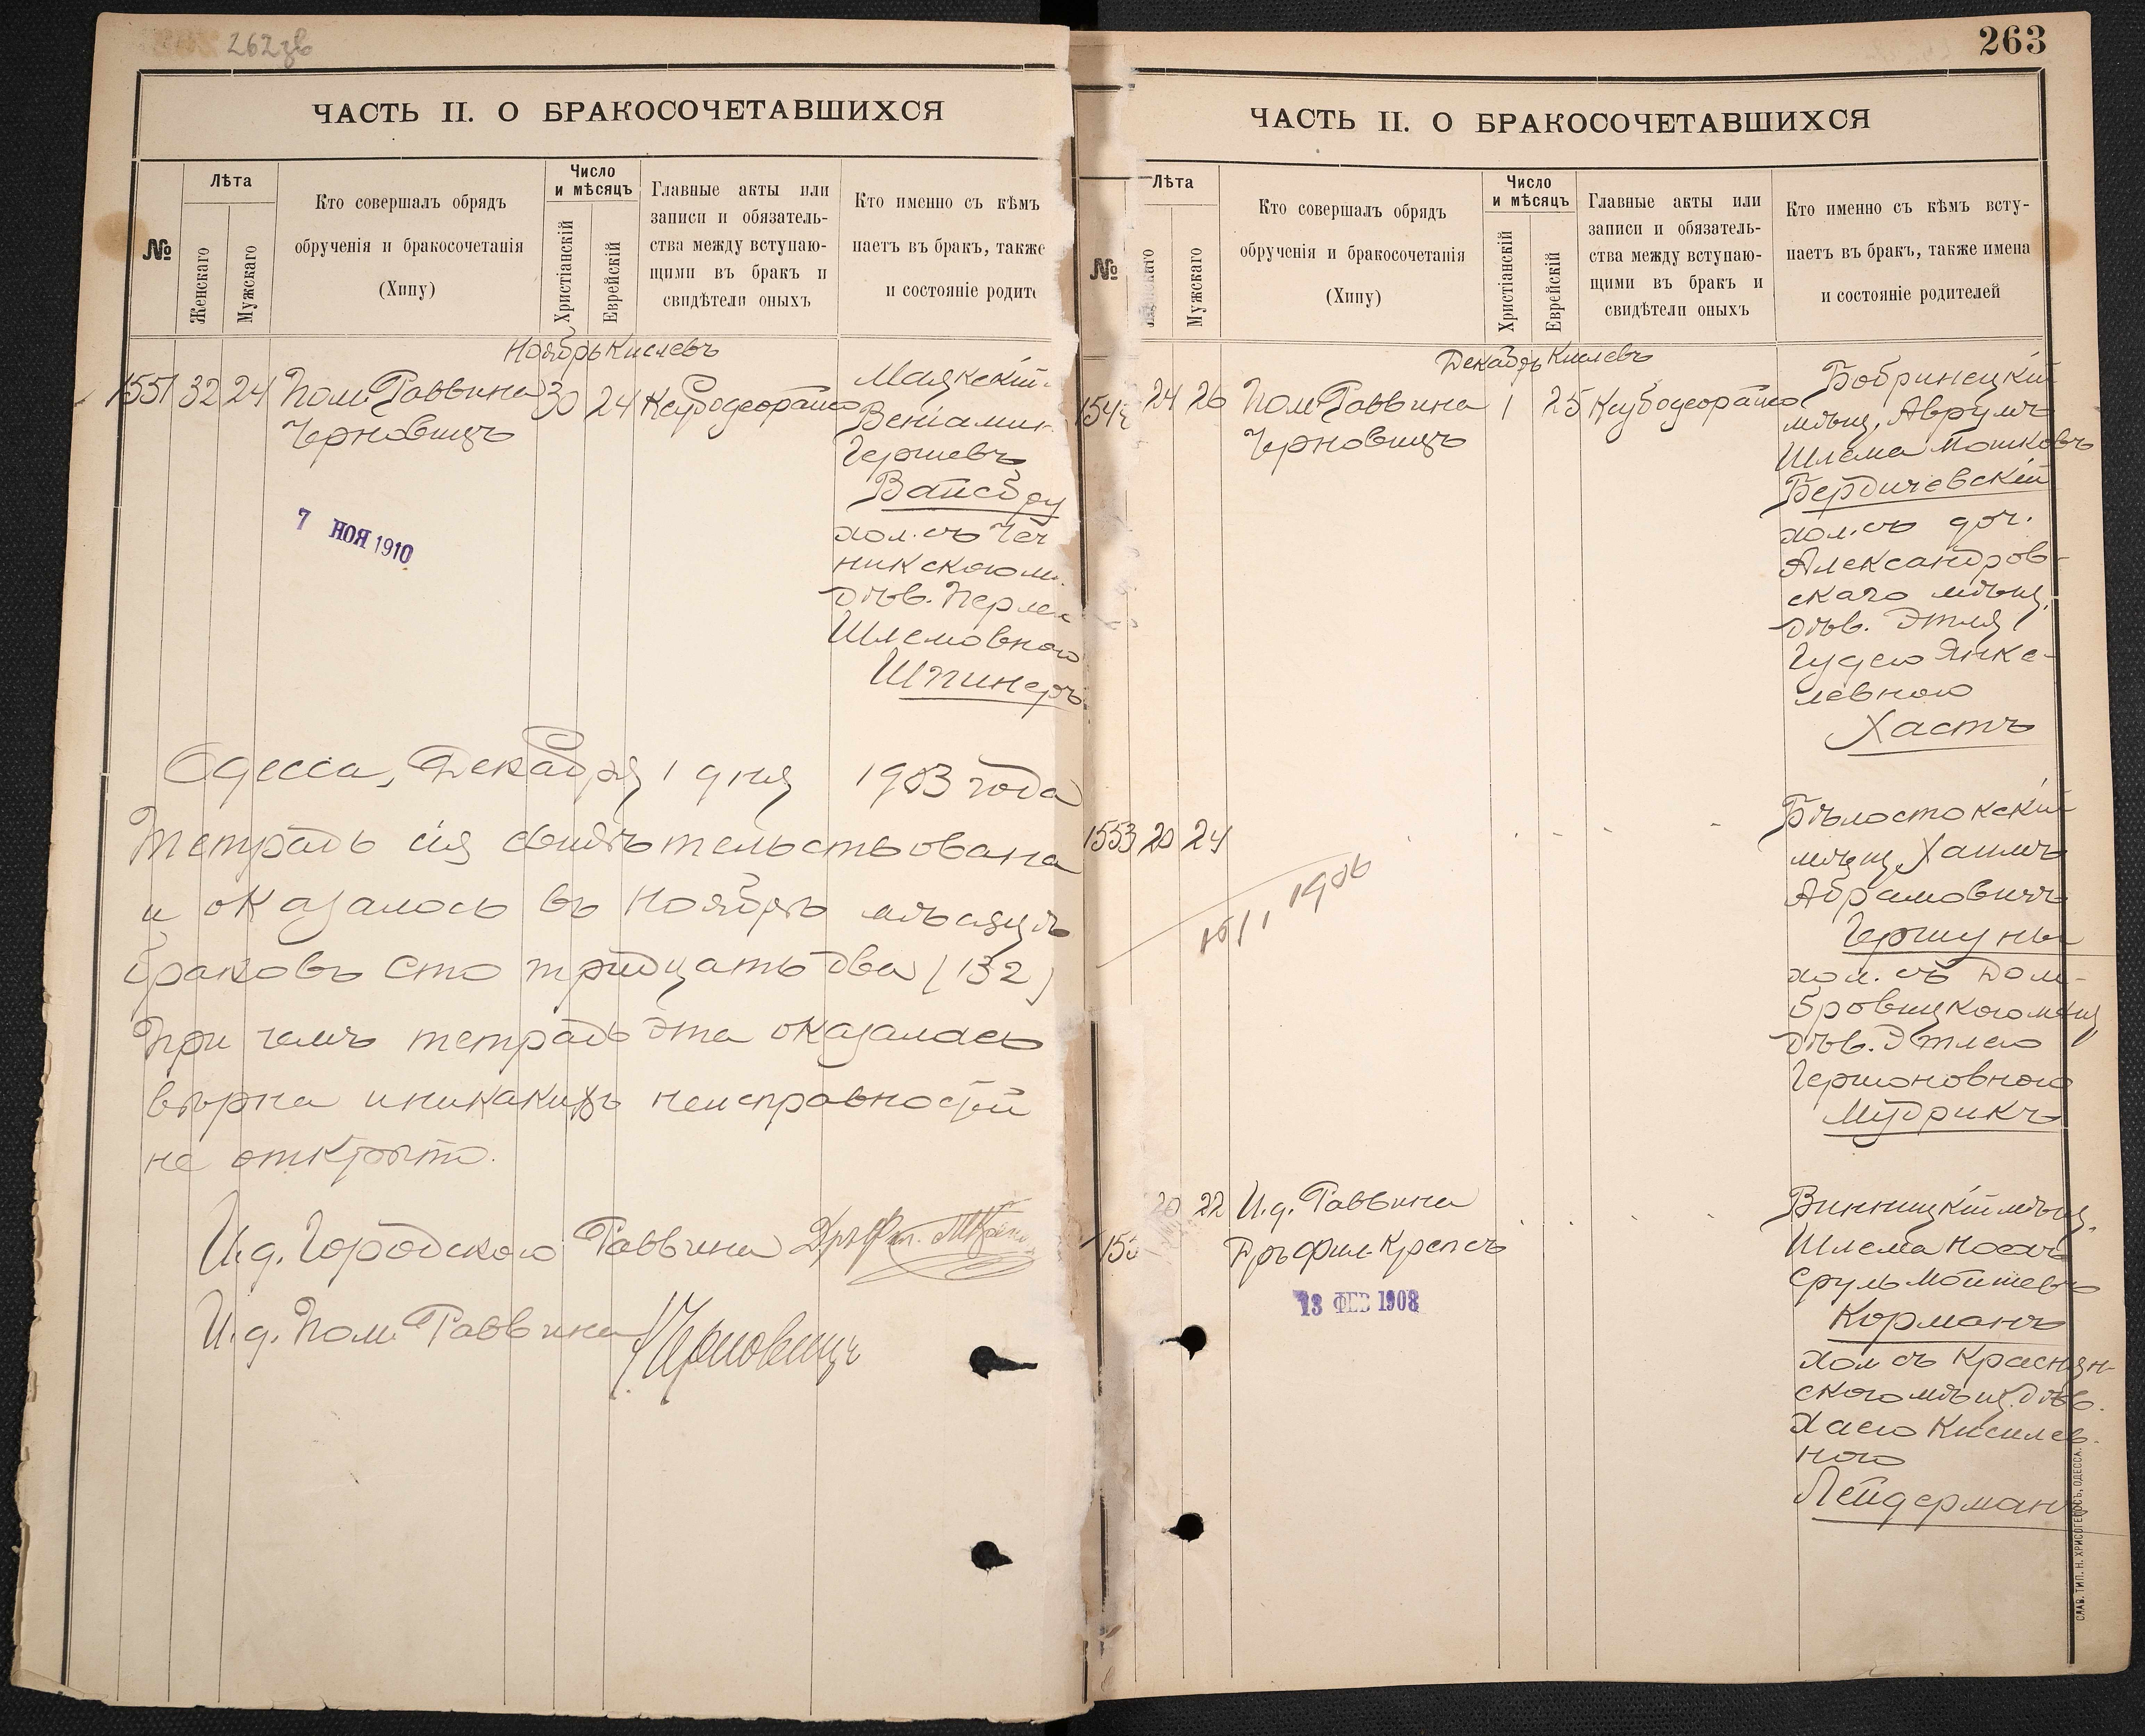 262зв
ЧАСТЬ II. О БРАКОСОЧЕТАВШИХСЯ
№
Лѣта
Женскаго
Мужскаго
Кто совершалъ обрядъ
обрученія и бракосочетанія
(Хипу)
Число
и мѣсяцъ
Христіанскій
Еврейскій
Главные акты или
записи и обязатель-
ства между вступаю-
щими въ бракъ и
свидѣтели оныхъ
Кто именно съ кѣмъ
паетъ въ бракъ, также
и состояніе родите
Ноябрь Кислевъ
1551 32 24 Пом. Раввина 30 24
Черновицъ
7 НОЯ 1910
Маякскій
Веніамин
Гершевъ
Вайсбру
хол. съ Чеч
никскою м.
дѣв. Перле
Шлемовною
Шпинеръ
Одесса, Декабря 1 дня 1903 года
Тетрадь сія свидѣтельствована
и оказалось въ Ноябрѣ мѣсяцѣ
браковъ сто тридцать два (132)
При чемъ тетрадь эта оказалась
вѣрна и никакихъ неисправностей
не открыто.
И.д. Городского Раввина
И.д. Пом. Раввина Черновицъ
263
ЧАСТЬ II. О БРАКОСОЧЕТАВШИХСЯ
№
Лѣта
Мужскаго
Кто совершалъ обрядъ
обрученія и бракосочетанія
(Хипу)
Число
и мѣсяцъ
Христіанскій
Еврейскій
Главные акты или
записи и обязатель-
ства между вступаю-
щими въ бракъ и
свидѣтели оныхъ
Кто именно съ кѣмъ всту-
паетъ въ бракъ, также имена
и состояніе родителей
Декабрь Кислевъ
24 26 Пом. Раввина 1 25
Черновицъ
Бобринецкій
мѣщ. Аврумъ
Шлема Мошковъ
Бердичевскій
хол. съ доч.
Александров-
скаго мѣщ.
дѣв. Этля
Гудею Янке-
левною
Хастъ
1553 20 24
1906
Бѣлостокскій
мѣщ. Хаимъ
Абрамовичъ
Гершуны
хол. съ Дом-
бровицкою мѣщ
дѣв. Этлею
Гершоновною
Мудрикъ
20 22 И.д. Раввина
Дръ Фил. Крепсъ
13 ФЕВ 1908
Винницкій мѣщ.
Шлема Носонъ
Сруль Мойшевъ
Корманъ
хол. съ Краснян-
скою мѣщ. дѣв.
Хаею Кисилев-
ною
Лейдерманъ
СЛАВ. ТИП. Н. ХРИСОГЕЛОСЪ, ОДЕССА.